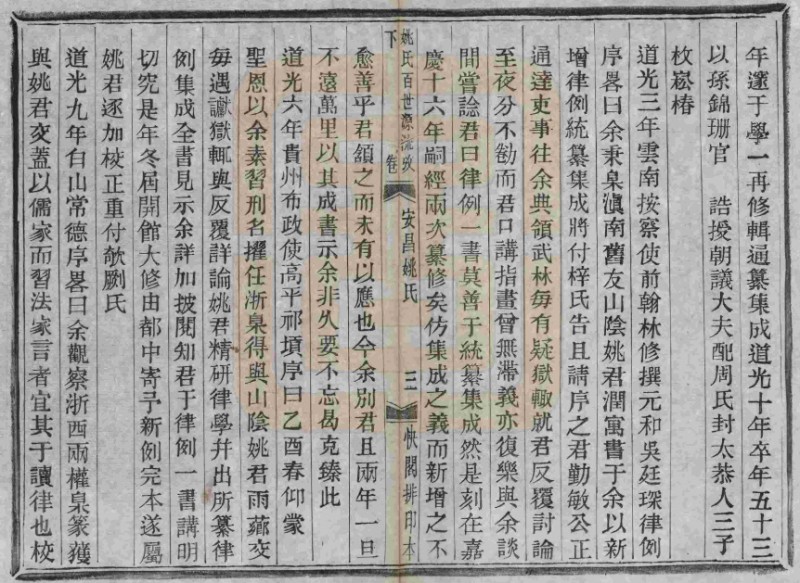 年邃于學一再修輯通纂集成道光十年卒年五十三
以孫錦珊官　誥授朝議大夫配周氏封太恭人三子
枚崧椿
道光三年雲南按察使前翰林修撰元和吳廷琛律例
序畧曰余秉臬滇南舊友山陰姚君潤寓書于余以新
增律例統纂集成將付梓氏告且請序之君勤敏公正
通達吏事往余典領武林每有疑獄輒就君反覆討論
至夜分不勌而君口講指畫曾無滯義亦復樂與余談
間嘗諗君曰律例一書莫善于統纂集成然是刻在嘉
慶十六年嗣經兩次纂修矣仿集成之義而新增之不
愈善乎君頷之而未有以應也今余別君且兩年一旦
不遠萬里以其成書示余非久要不忘曷克臻此
道光六年貴州布政使高平祁𡎴序曰乙酉春仰蒙
聖恩以余素習刑名擢任浙臬得與山陰姚君雨薌交
每遇讞獄輒與反覆詳論姚君精研律學幷出所纂律
例集成全書見示余詳加披閱知君于律例一書講明
切究是年冬屆開館大修由都中寄予新例完本遂屬
姚君逐加校正重付欹劂氏
道光九年白山常德序畧曰余觀察浙西兩權臬篆獲
與姚君交蓋以儒家而習法家言者宜其于讀律也校
姚氏百世源流攷　卷下　安昌姚氏　三　快閣排印本